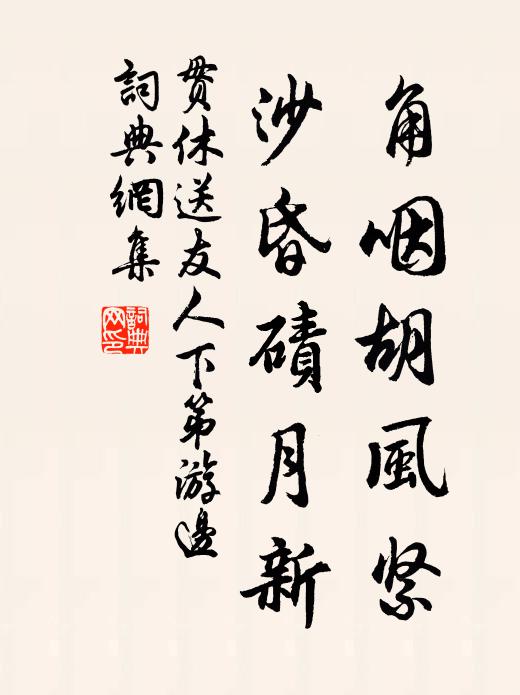 角咽胡風緊
沙昏磧月新
貫休送友人下第游邊
詞典網集
詞典
网印